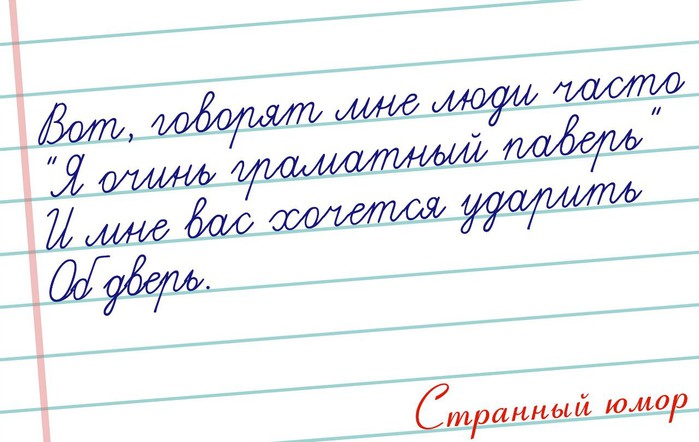 Вот, говорят мне люди часто
"Я очинь граматный паверь"
И мне вас хочется ударить
Об дверь.
Странный юмор